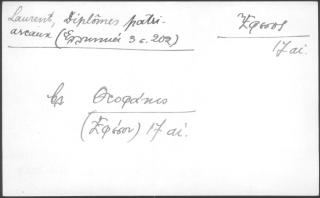 Laurent, Diplômes patri-
arcaux (Ἑλληνικά 3 σ. 202)
Ἔφεσος
17 αἰ.
Θεοφάνης
(Ἐφέσου) 17 αἰ.